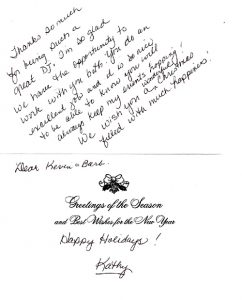 Thanks so much
for being such a
great DJ. I'm so glad
we have the opportunity to
work with you both. You do an
excellent job and it is so nice
to be able to know you will
always keep my events hopping!
We wish you a wonderful
Christmas
filled with much happiness!
Dear Kevin & Barb,
Greetings of the Season
and Best Wishes for the New Year
Happy Holidays!
Kathy